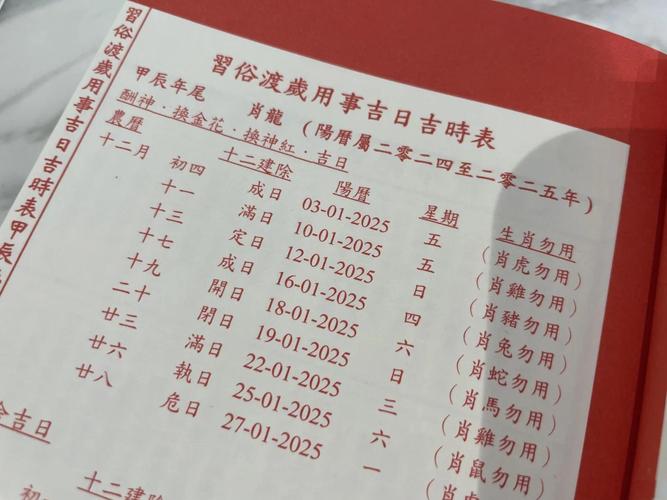 習俗渡歲用事吉日吉時表甲辰
習俗渡歲用事吉日吉時表
甲辰年尾 肖龍 (陽曆屬二零二四至二零二五年)
酬神．換金花．換神紅．吉日
農曆 十二建除 陽曆 星期 生肖勿用
十二月 初四 成日 03-01-2025 五 (肖虎勿用)
十一 滿日 10-01-2025 五 (肖雞勿用)
十三 定日 12-01-2025 日 (肖豬勿用)
十七 成日 16-01-2025 四 (肖兔勿用)
十九 開日 18-01-2025 六 (肖蛇勿用)
二十 閉日 19-01-2025 日 (肖馬勿用)
廿三 滿日 22-01-2025 三 (肖雞勿用)
廿六 執日 25-01-2025 六 (肖鼠勿用)
廿八 危日 27-01-2025 一 (肖虎
吉日
十二建除
初